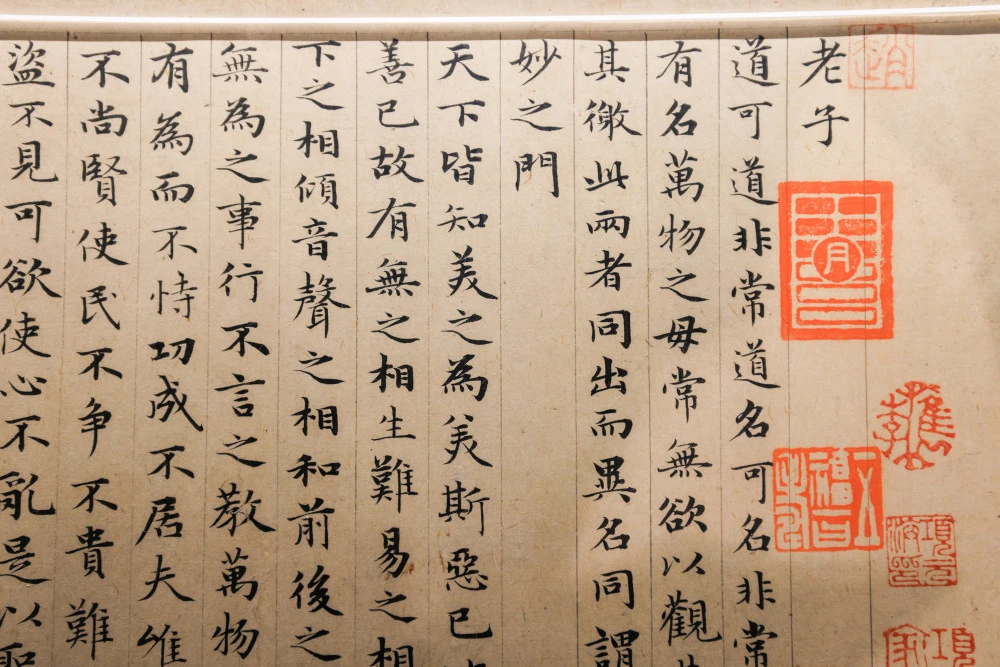 老子
道可道非常道名可名非常
有名萬物之母常無欲以觀
其徼此兩者同出而異名同謂
妙之門
天下皆知美之為美斯惡已
善已故有無之相生難易之相
下之相傾音聲之相和前後之
無為之事行不言之教萬物
有為而不恃功成不居夫惟
不尚賢使民不争不貴難
盜不見可欲使心不亂是以